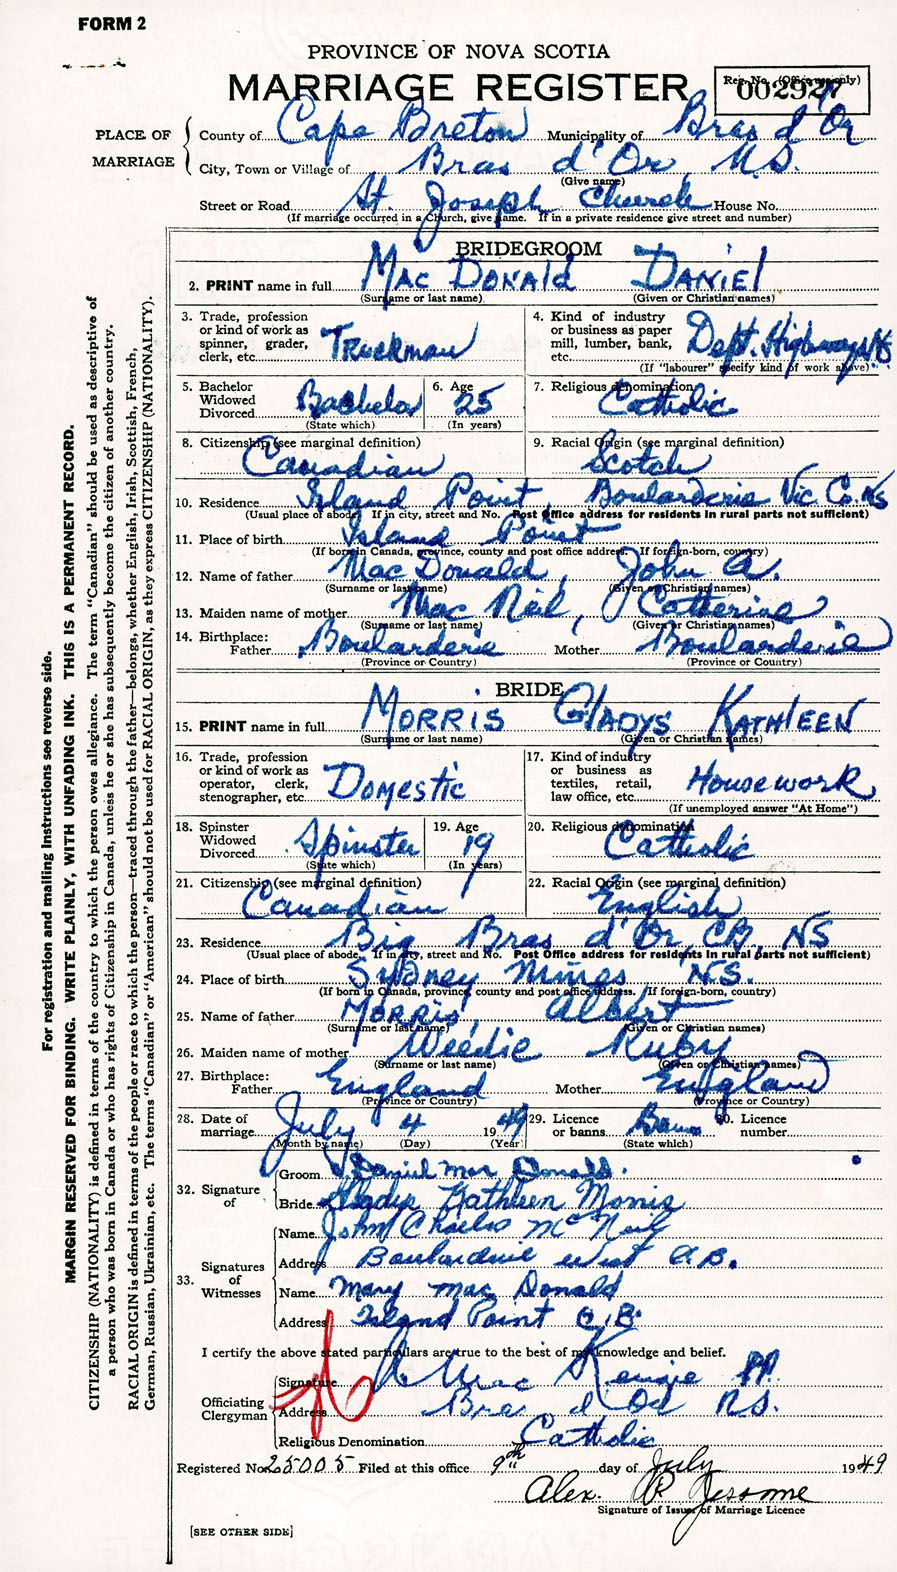 FORM 2
PROVINCE OF NOVA SCOTIA
MARRIAGE REGISTER
Reg. No. (Office use only)
002927
PLACE OF MARRIAGE
County of Cape Breton Municipality of Bras d'Or
City, Town or Village of Bras d'Or, N.S.
(Give name)
Street or Road St. Joseph Church House No.
(If marriage occurred in a Church, give name. If in a private residence give street and number)
BRIDEGROOM
2. PRINT name in full MacDonald Daniel
(Surname or last name) (Given or Christian names)
3. Trade, profession or kind of work as spinner, grader, clerk, etc. Truckman
4. Kind of industry or business as paper mill, lumber, bank, etc. Dept. Highways NS
(If "labourer" specify kind of work above)
5. Bachelor Widowed Divorced Bachelor
(State which)
6. Age 25
(In years)
7. Religious denomination Catholic
8. Citizenship (see marginal definition) Canadian
9. Racial Origin (see marginal definition) Scotch
10. Residence Island Point, Boularderie Vic Co. NS
(Usual place of abode. If in city, street and No. Post Office address for residents in rural parts not sufficient)
11. Place of birth Island Point
(If born in Canada, province, county and post office address. If foreign-born, country)
12. Name of father MacDonald, John A.
(Surname or last name) (Given or Christian names)
13. Maiden name of mother MacNeil, Catherine
(Surname or last name) (Given or Christian names)
14. Birthplace: Father Boularderie Mother Boularderie
(Province or Country) (Province or Country)
BRIDE
15. PRINT name in full Morris Gladys Kathleen
(Surname or last name) (Given or Christian names)
16. Trade, profession or kind of work as operator, clerk, stenographer, etc. Domestic
17. Kind of industry or business as textiles, retail, law office, etc. Housework
(If unemployed answer "At Home")
18. Spinster Widowed Divorced Spinster
(State which)
19. Age 19
(In years)
20. Religious denomination Catholic
21. Citizenship (see marginal definition) Canadian
22. Racial Origin (see marginal definition) English
23. Residence Big Bras d'Or, CB, NS
(Usual place of abode. If in city, street and No. Post Office address for residents in rural parts not sufficient)
24. Place of birth Sydney Mines N.S.
(If born in Canada, province, county and post office address. If foreign-born, country)
25. Name of father Morris, Albert
(Surname or last name) (Given or Christian names)
26. Maiden name of mother Weedie Ruby
(Surname or last name) (Given or Christian names)
27. Birthplace: Father England Mother England
(Province or Country) (Province or Country)
28. Date of marriage July 4 1949
(Month by name) (Day) (Year)
29. Licence or banns Banns
(State which)
30. Licence number
32. Signature of
Groom Daniel Mac Donald.
Bride Gladys Kathleen Morris
33. Signatures of Witnesses
Name John Charles McNeil
Address Boularderie West C.B.
Name Mary MacDonald
Address Island Point C.B.
I certify the above stated particulars are true to the best of my knowledge and belief.
Officiating Clergyman
Signature MacKenzie PP.
Address Bras d'Or N.S.
Religious Denomination Catholic
Registered No. 25005 Filed at this office 9th day of July 1949
Alex. R Jessome
Signature of Issuer of Marriage Licence
[SEE OTHER SIDE]
For registration and mailing instructions see reverse side.
MARGIN RESERVED FOR BINDING. WRITE PLAINLY, WITH UNFADING INK. THIS IS A PERMANENT RECORD.
CITIZENSHIP (NATIONALITY) is defined in terms of the country to which the person owes allegiance. The term "Canadian" should be used as descriptive of
a person who was born in Canada or who has rights of Citizenship in Canada, unless he or she has subsequently become the citizen of another country.
RACIAL ORIGIN is defined in terms of the people or race to which the person—traced through the father—belongs, whether English, Irish, Scottish, French,
German, Russian, Ukrainian, etc. The terms "Canadian" or "American" should not be used for RACIAL ORIGIN, as they express CITIZENSHIP (NATIONALITY).